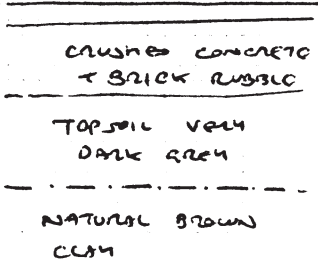 CRUSHED CONCRETE
+ BRICK RUBBLE
TOPSOIL VERY
DARK GREY
NATURAL BROWN
CLAY